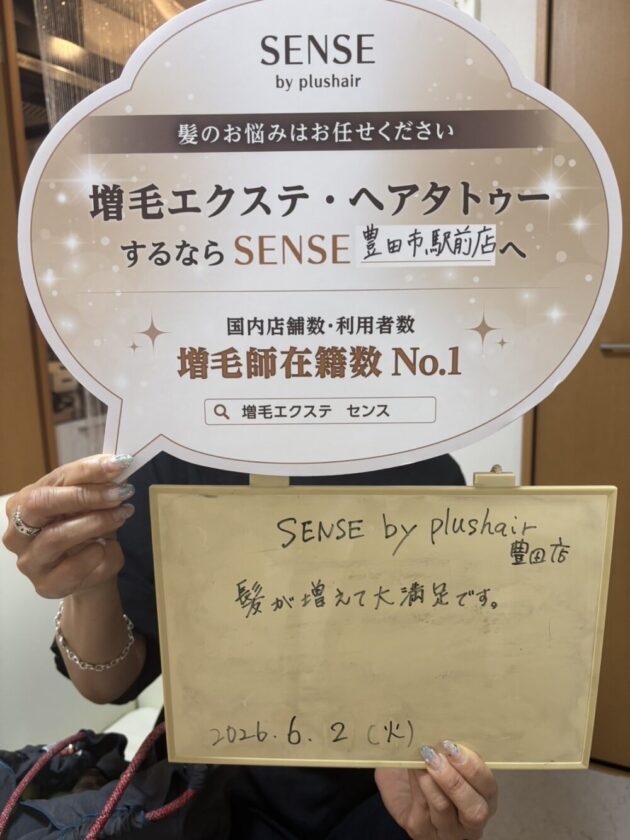 SENSE
by plushair
髪のお悩みはお任せください
増毛エクステ・ヘアタトゥー
するなら SENSE 豊田市駅前店へ
国内店舗数・利用者数
増毛師在籍数 No.1
増毛エクステ センス
SENSE by plushair
豊田店
髪が増えて大満足です。
2026.6.2(火)